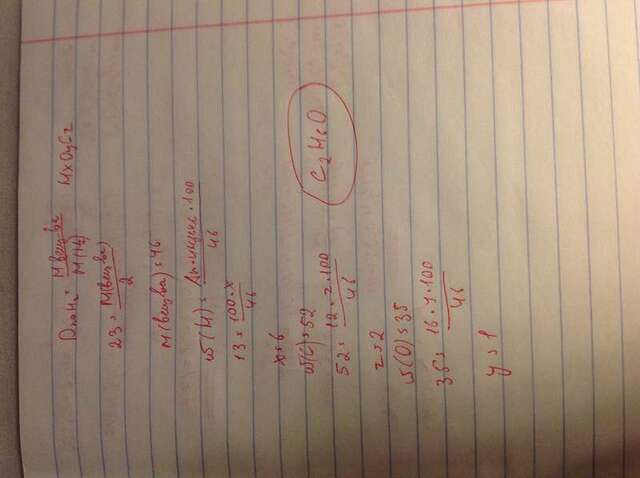 D по H₂ = M(вещ-ва) / M(H₂) HxOyCz
23 = M(вещ-ва) / 2
M(вещ-ва) = 46
ω(H) = Ar · индекс · 100 / 46
13 = 100 · x / 46
x = 6
ω(C) = 52
52 = 12 · z · 100 / 46
z = 2
ω(O) = 35
35 = 16 · y · 100 / 46
y = 1
C₂H₆O